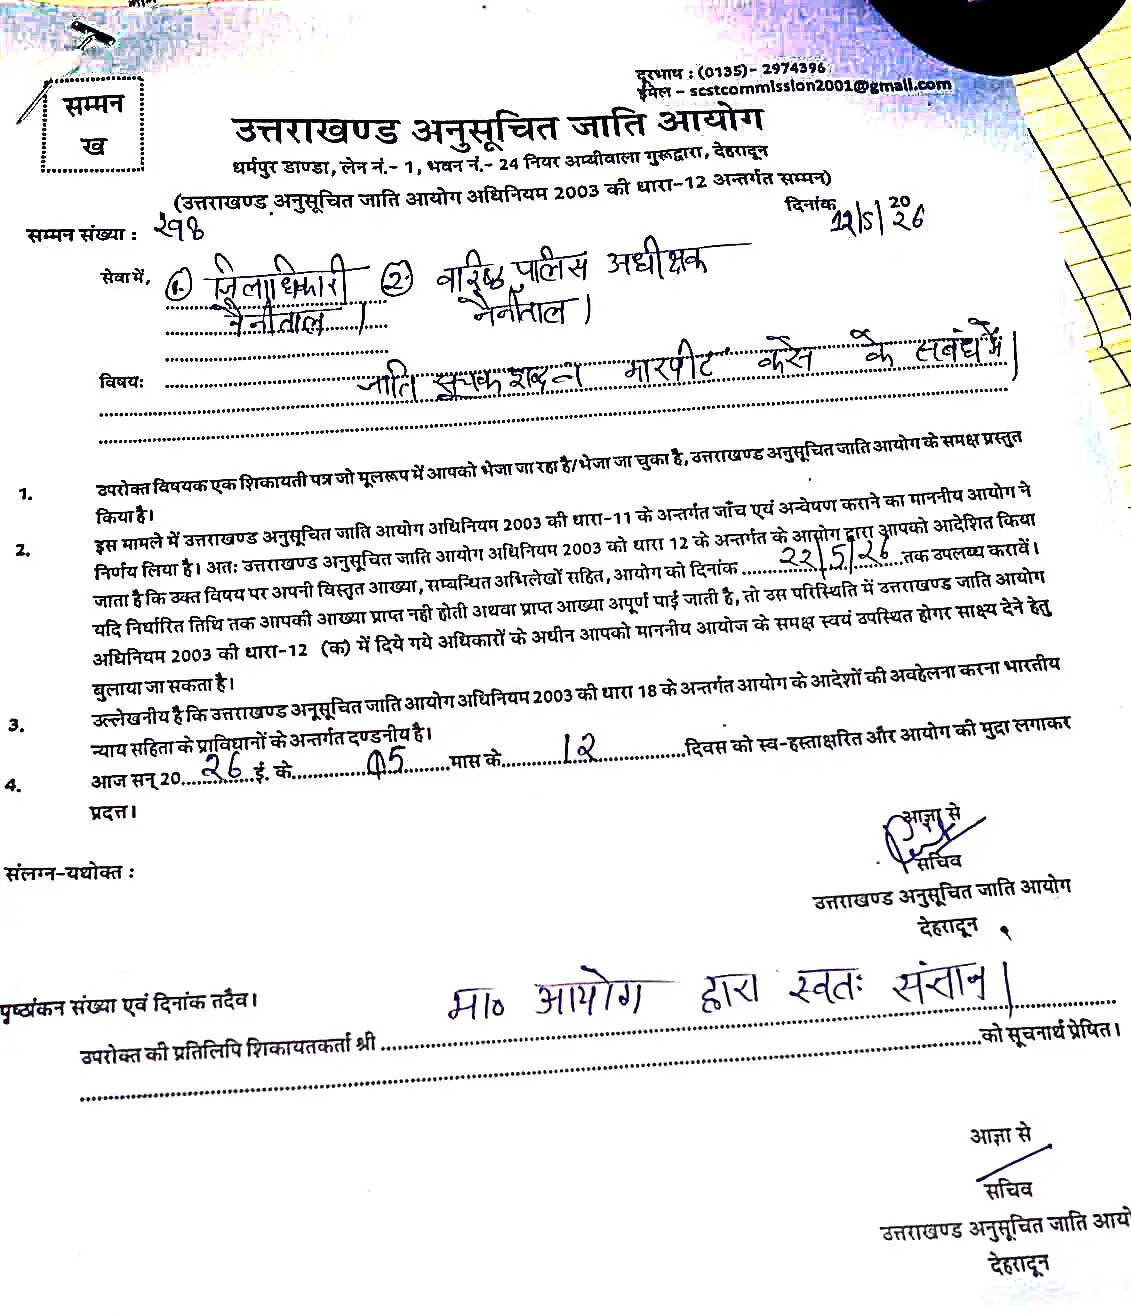 दूरभाष : (0135)- 2974396
ईमेल - scstcommission2001@gmail.com
सम्मन
ख
उत्तराखण्ड अनुसूचित जाति आयोग
धर्मपुर डाण्डा, लेन नं.- 1, भवन नं.- 24 नियर अम्बीवाला गुरूद्वारा, देहरादून
(उत्तराखण्ड अनुसूचित जाति आयोग अधिनियम 2003 की धारा-12 अन्तर्गत सम्मन)
सम्मन संख्या :
दिनांक 12/5/2026
सेवा में, 1. जिलाधिकारी 2. वरिष्ठ पुलिस अधीक्षक
नैनीताल। नैनीताल।
विषयः जाति सूचक शब्द व मारपीट केस के सबंध में।
1. उपरोक्त विषयक एक शिकायती पत्र जो मूलरूप में आपको भेजा जा रहा है/भेजा जा चुका है, उत्तराखण्ड अनुसूचित जाति आयोग के समक्ष प्रस्तुत
किया है।
2. इस मामले में उत्तराखण्ड अनुसूचित जाति आयोग अधिनियम 2003 की धारा-11 के अन्तर्गत जाँच एवं अन्वेषण कराने का माननीय आयोग ने
निर्णय लिया है। अतः उत्तराखण्ड अनुसूचित जाति आयोग अधिनियम 2003 को धारा 12 के अन्तर्गत के आयोग द्वारा आपको आदेशित किया
जाता है कि उक्त विषय पर अपनी विस्तृत आख्या, सम्बन्धित अभिलेखों सहित, आयोग को दिनांक 22/5/26 तक उपलब्ध करावें।
यदि निर्धारित तिथि तक आपकी आख्या प्राप्त नही होती अथवा प्राप्त आख्या अपूर्ण पाई जाती है, तो उस परिस्थिति में उत्तराखण्ड जाति आयोग
अधिनियम 2003 की धारा-12 (क) में दिये गये अधिकारों के अधीन आपको माननीय आयोज के समक्ष स्वयं उपस्थित होगर साक्ष्य देने हेतु
बुलाया जा सकता है।
3. उल्लेखनीय है कि उत्तराखण्ड अनूसूचित जाति आयोग अधिनियम 2003 की धारा 18 के अन्तर्गत आयोग के आदेशों की अवहेलना करना भारतीय
न्याय सहिता के प्राविधानों के अन्तर्गत दण्डनीय है।
4. आज सन् 20 26 ई. के 05 मास के 12 दिवस को स्व-हस्ताक्षरित और आयोग की मुद्रा लगाकर
प्रदत्त।
आज्ञा से
सचिव
संलग्न-यथोक्त :
उत्तराखण्ड अनुसूचित जाति आयोग
देहरादून
पृष्ठांकन संख्या एवं दिनांक तदैव।
उपरोक्त की प्रतिलिपि शिकायतकर्ता श्री मा० आयोग द्वारा स्वतः संज्ञान।
को सूचनार्थ प्रेषित।
आज्ञा से
सचिव
उत्तराखण्ड अनुसूचित जाति आयो
देहरादून